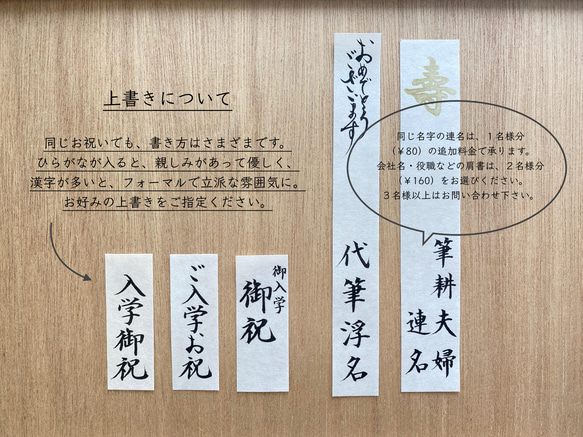 上書きについて
同じお祝いでも、書き方はさまざまです。
ひらがなが入ると、親しみがあって優しく、
漢字が多いと、フォーマルで立派な雰囲気に。
お好みの上書きをご指定ください。
入学御祝
ご入学お祝
御入学
御祝
おめでとう
ございます
代筆浮名
寿
同じ名字の連名は、1名様分
(¥80)の追加料金で承ります。
会社名・役職などの肩書は、2名様分
(¥160)をお選びください。
3名様以上はお問い合わせ下さい。
筆耕夫婦
連名